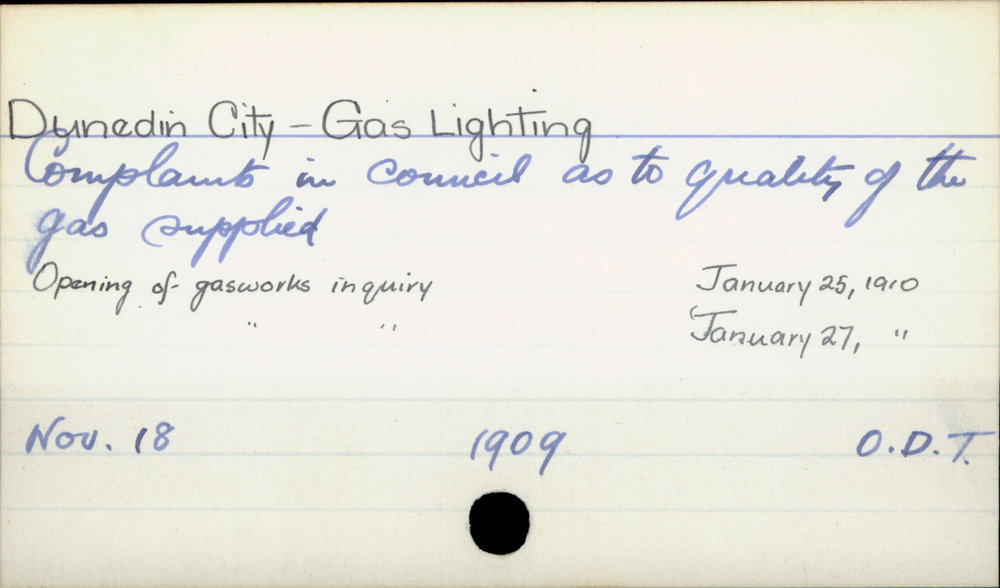 Dunedin City - Gas Lighting
Complaints in council as to quality of the
gas supplied
Opening of gasworks inquiry January 25, 1910
" " January 27, "
Nov. 18 1909 O.D.T.